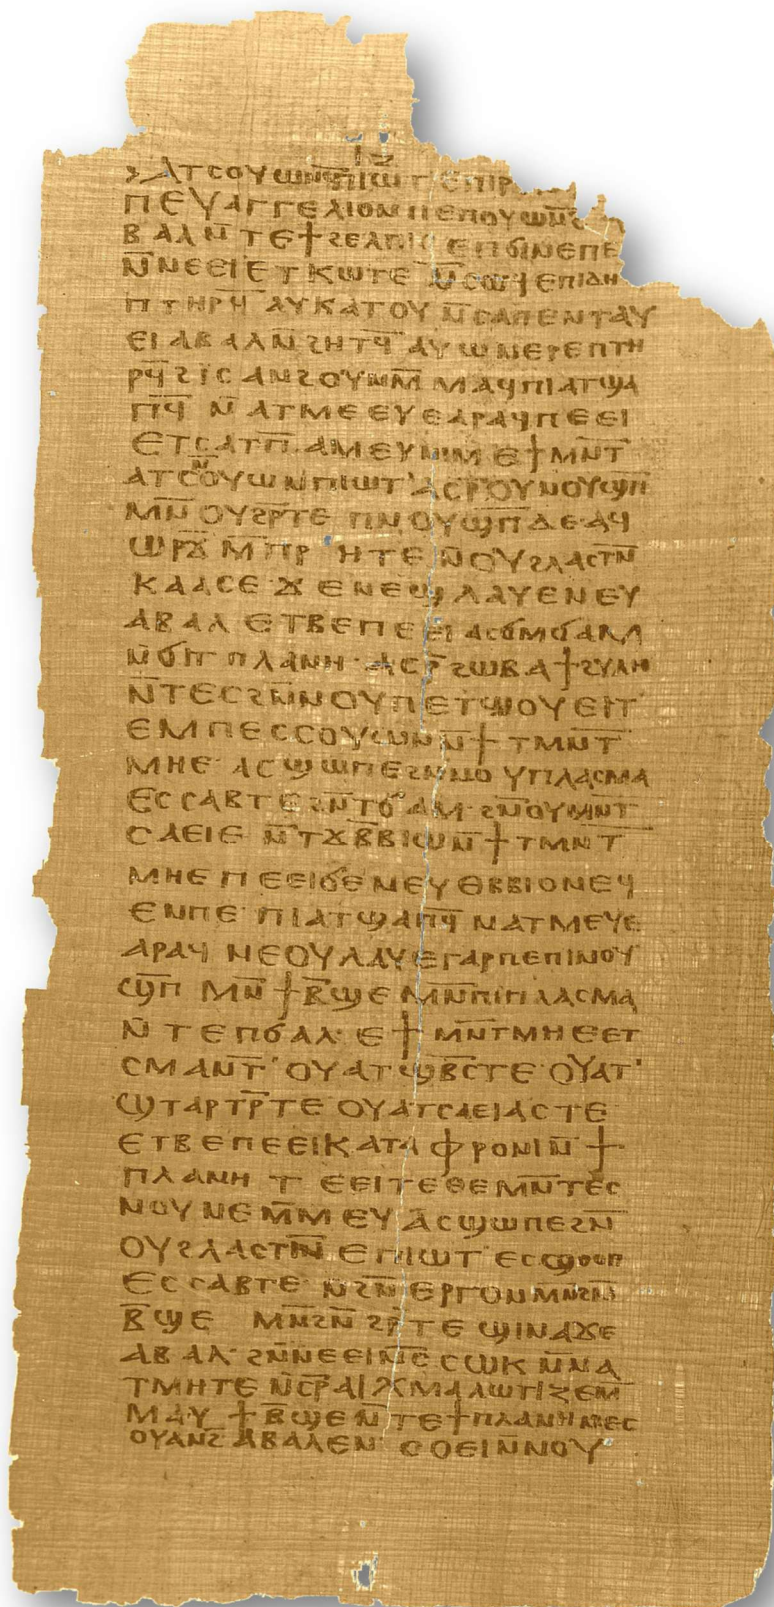 ⲓ̅ⲍ̅
ⲁⲧⲥⲟⲩⲱⲛϥ̅ ⲡⲓⲱⲧ
ⲡⲉⲩⲁⲅⲅⲉⲗⲓⲟⲛ ⲡⲉ ⲡⲟⲩⲱⲛϩ̅
ⲃⲁⲗ ⲛ̅ⲧⲉ ϯϩⲉⲗⲡⲓⲥ ⲉⲡϭⲓⲛⲉ ⲡⲉ
ⲛ̅ⲛⲉⲉⲓ ⲉⲧⲕⲱⲧⲉ ⲛ̅ⲥⲱϥ ⲉⲡⲓⲇⲏ
ⲡⲧⲏⲣϥ̅ ⲁⲩⲕⲁⲧⲟⲩ ⲛ̅ⲥⲁ ⲡⲉⲛⲧⲁⲩ
ⲉⲓ ⲁⲃⲁⲗ ⲛ̅ϩⲏⲧϥ̅ ⲁⲩⲱ ⲛⲉⲣⲉ ⲡⲧⲏ
ⲣϥ̅ ϩⲓ ⲥⲁⲛϩⲟⲩⲛ ⲙ̅ⲙⲁϥ ⲡⲓⲁⲧϣⲁ
ⲡϥ̅ ⲛ̅ⲁⲧⲙⲉⲉⲩⲉ ⲁⲣⲁϥ ⲡⲉⲉⲓ
ⲉⲧⲥⲁⲧⲡ̅ ⲁⲙⲉⲩ ⲛⲓⲙ ⲉϯⲙⲛ̅ⲧ
ⲁⲧⲥⲟⲩⲱⲛ ⲡⲓⲱⲧ ⲁⲥⲣ̅ ⲟⲩⲛⲟⲩϣⲡ̅
ⲙⲛ̅ ⲟⲩϩⲣ̅ⲧⲉ ⲡⲛⲟⲩϣⲡ̅ ⲇⲉ ⲁϥ
ⲱⲣϫ̅ ⲙ̅ⲡⲣⲏⲧⲉ ⲛ̅ⲟⲩϩⲗⲁⲥⲧⲛ̅
ⲕⲁⲁⲥⲉ ϫⲉ ⲛⲉϣ ⲗⲁⲩⲉ ⲛⲉⲩ
ⲁⲃⲁⲗ ⲉⲧⲃⲉ ⲡⲉⲉⲓ ⲁⲥϭⲙϭⲁⲙ
ⲛ̅ϭⲓ ϯⲡⲗⲁⲛⲏ ⲁⲥⲣ̅ ϩⲱⲃ ⲁϯϩⲩⲗⲏ
ⲛ̅ⲧⲉⲥ ϩⲛ̅ⲛ ⲟⲩⲡⲉⲧϣⲟⲩⲉⲓⲧ
ⲉⲙⲡⲉⲥⲥⲟⲩⲱⲛ ⲛ̅ϯⲧⲙⲛ̅ⲧ
ⲙⲏⲉ ⲁⲥϣⲱⲡⲉ ϩⲛ̅ⲛⲟⲩⲡⲗⲁⲥⲙⲁ
ⲉⲥⲥⲁⲃⲧⲉ ϩⲛ̅ ⲧϭⲁⲙ ϩⲛ̅ ⲟⲩⲙⲛ̅ⲧ
ⲥⲁⲉⲓⲉ ⲛ̅ⲧϫⲃ̅ⲃⲓⲱ ⲛ̅ϯⲧⲙⲛ̅ⲧ
ⲙⲏⲉ ⲡⲉⲉⲓ ϭⲉ ⲛⲉⲩⲑⲃⲃⲓⲟ ⲛⲉϥ
ⲉⲛ ⲡⲉ ⲡⲓⲁⲧϣⲁⲡϥ̅ ⲛⲁⲧⲙⲉⲩⲉ
ⲁⲣⲁϥ ⲛⲉⲟⲩⲗⲁⲩⲉ ⲅⲁⲣ ⲡⲉ ⲡⲓⲛⲟⲩ
ϣⲡ̅ ⲙⲛ̅ ϯⲃ̅ϣⲉ ⲙⲛ̅ ⲡⲓⲡⲗⲁⲥⲙⲁ
ⲛ̅ⲧⲉ ⲡϭⲁⲗ ⲉϯⲙⲛ̅ⲧⲙⲏⲉ ⲉⲧ
ⲥⲙⲁⲛⲧ̅ ⲟⲩⲁⲧϣⲃ̅ⲥⲧⲉ ⲟⲩⲁⲧ
ϣⲧⲁⲣⲧⲣ̅ⲧⲉ ⲟⲩⲁⲧⲥⲁⲉⲓⲁⲥⲧⲉ
ⲉⲧⲃⲉ ⲡⲉⲉⲓ ⲕⲁⲧⲁⲫⲣⲟⲛⲓ ⲛ̅ϯ
ⲡⲗⲁⲛⲏ ⲧⲉⲉⲓ ⲧⲉ ⲑⲉ ⲙⲛ̅ⲧⲉⲥ
ⲛⲟⲩⲛⲉ ⲙ̅ⲙⲉⲩ ⲁⲥϣⲱⲡⲉ ϩⲛ̅
ⲟⲩϩⲗⲁⲥⲧⲛ̅ ⲉⲡⲓⲱⲧ ⲉⲥϣⲟⲟⲡ
ⲉⲥⲥⲁⲃⲧⲉ ⲛ̅ϩⲛ̅ⲉⲣⲅⲟⲛ ⲙⲛ̅ ϩⲛ̅
ⲃ̅ϣⲉ ⲙⲛ̅ ϩⲛ̅ϩⲣ̅ⲧⲉ ϣⲓⲛⲁ ϫⲉ
ⲁⲃⲁⲗ ϩⲛ̅ ⲛⲉⲉⲓ ⲛ̅ⲥⲥⲱⲕ ⲛ̅ⲛⲁ
ⲧⲙⲏⲧⲉ ⲛ̅ⲥⲣ̅ ⲁⲓⲭⲙⲁⲗⲱⲧⲓⲍⲉ ⲙ̅
ⲙⲁⲩ ϯⲃ̅ϣⲉ ⲛ̅ⲧⲉ ϯⲡⲗⲁⲛⲏ ⲛⲉⲥ
ⲟⲩⲁⲛϩ̅ ⲁⲃⲁⲗ ⲉⲛ ⲥⲟⲉⲓ ⲛ̅ⲛⲟⲩ